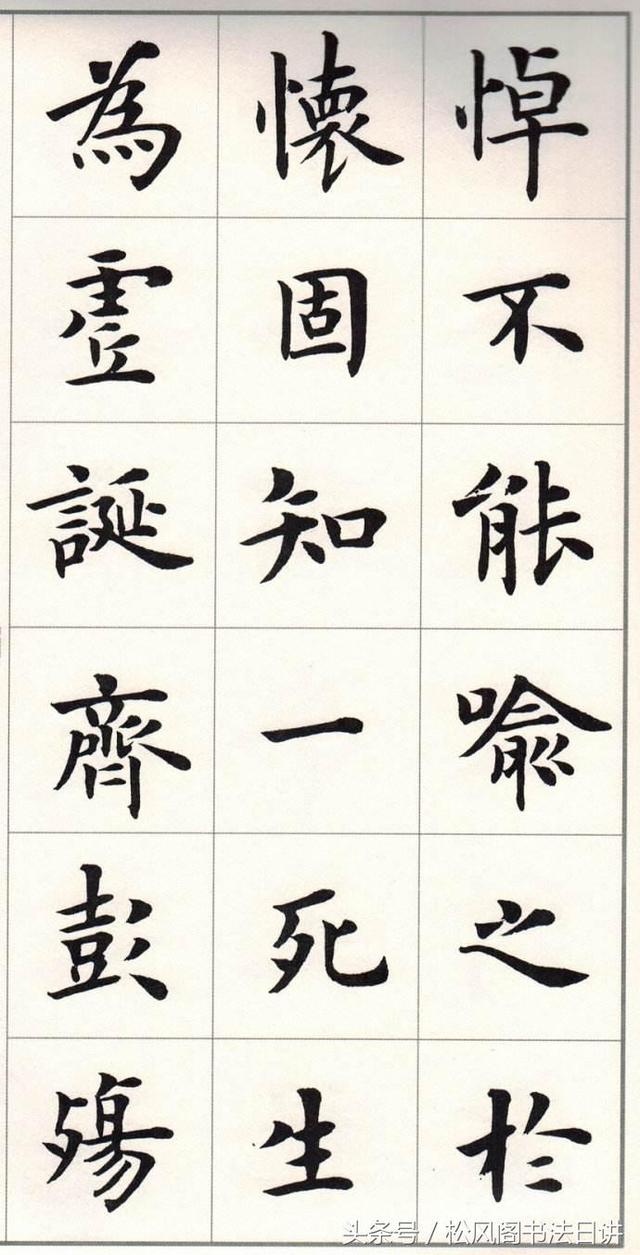 悼不能喻之於
懷固知一死生
為虛誕齊彭殤
头条号/松风阁书法日讲